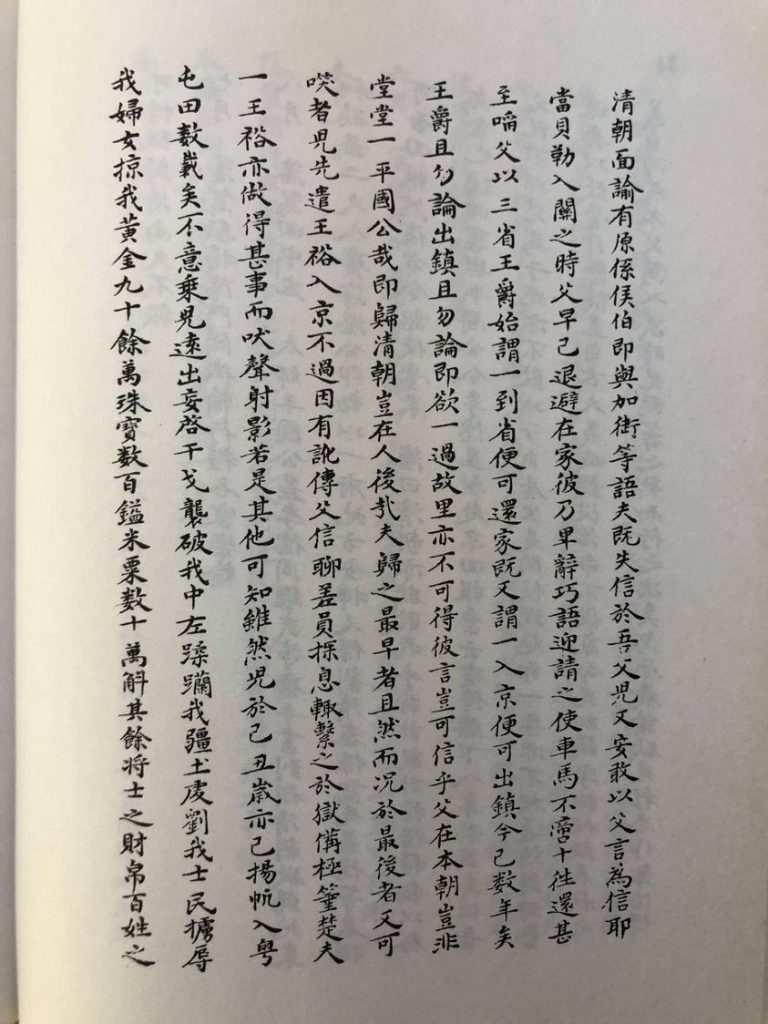 清朝面諭有原係侯伯即與加銜等語夫既失信於吾父児又安敢以父言為信耶
當貝勒入關之時父早已退避在家彼乃卑辭巧語迎請之使車馬不啻十徃還甚
至啗父以三省王爵始謂一到省便可還家既又謂一入京便可出鎮今已数年矣
王爵且勿論出鎮且勿論即欲一過故里亦不可得彼言豈可信乎父在本朝豈非
堂堂一平國公哉即歸清朝豈在人後㢤夫歸之最早者且然而况於最後者又可
啖者児先遣王裕入京不過因有訛傳父信聊差員探息輙繫之於獄備極箠楚夫
一王裕亦做得甚事而吠聲射影若是其他可知雖然児於己丑歲亦已揚帆入粤
屯田数載矣不意乗児遠出妄啓干戈襲破我中左蹂躪我疆土虔劉我士民擄辱
我婦女掠我黃金九十餘萬珠寶数百鎰米粟数十萬斛其餘将士之財帛百姓之